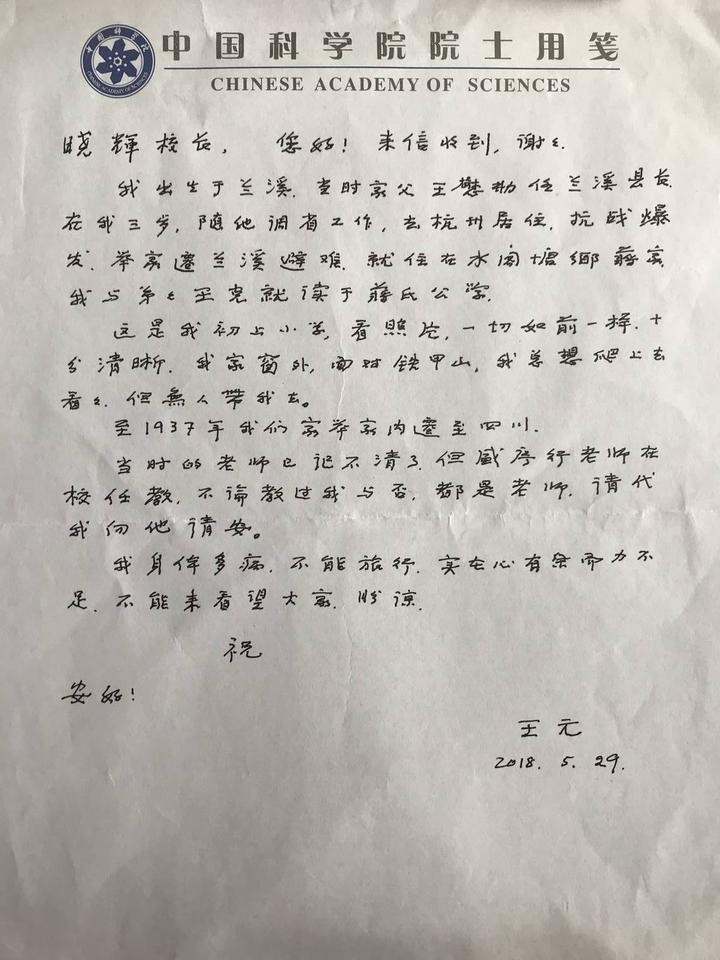 中国科学院院士用笺
CHINESE ACADEMY OF SCIENCES
中国科学院
CHINESE ACADEMY OF SCIENCES
晓辉校长，您好！来信收到，谢々.
我出生于兰溪.当时家父王懋勤任兰溪县长.
在我三岁，随他调省工作，去杭州居住.抗战爆
发.举家迁兰溪避难.就住在水阁塘乡蒋家.
我与弟々王克就读于蒋氏公学.
这是我初上小学，看照片，一切如前一样.十
分清晰.我家窗外，面对铁甲山，我总想爬上去
看々.但無人带我去。
至1937年我们家举家内迁至四川.
当时的老师已记不清了.但盛序行老师在
校任教.不论教过我与否，都是老师.请代
我向他请安。
我身体多病.不能旅行.实在心有余而力不
足.不能来看望大家.盼谅.
祝
安好！
王元
2018.5.29.